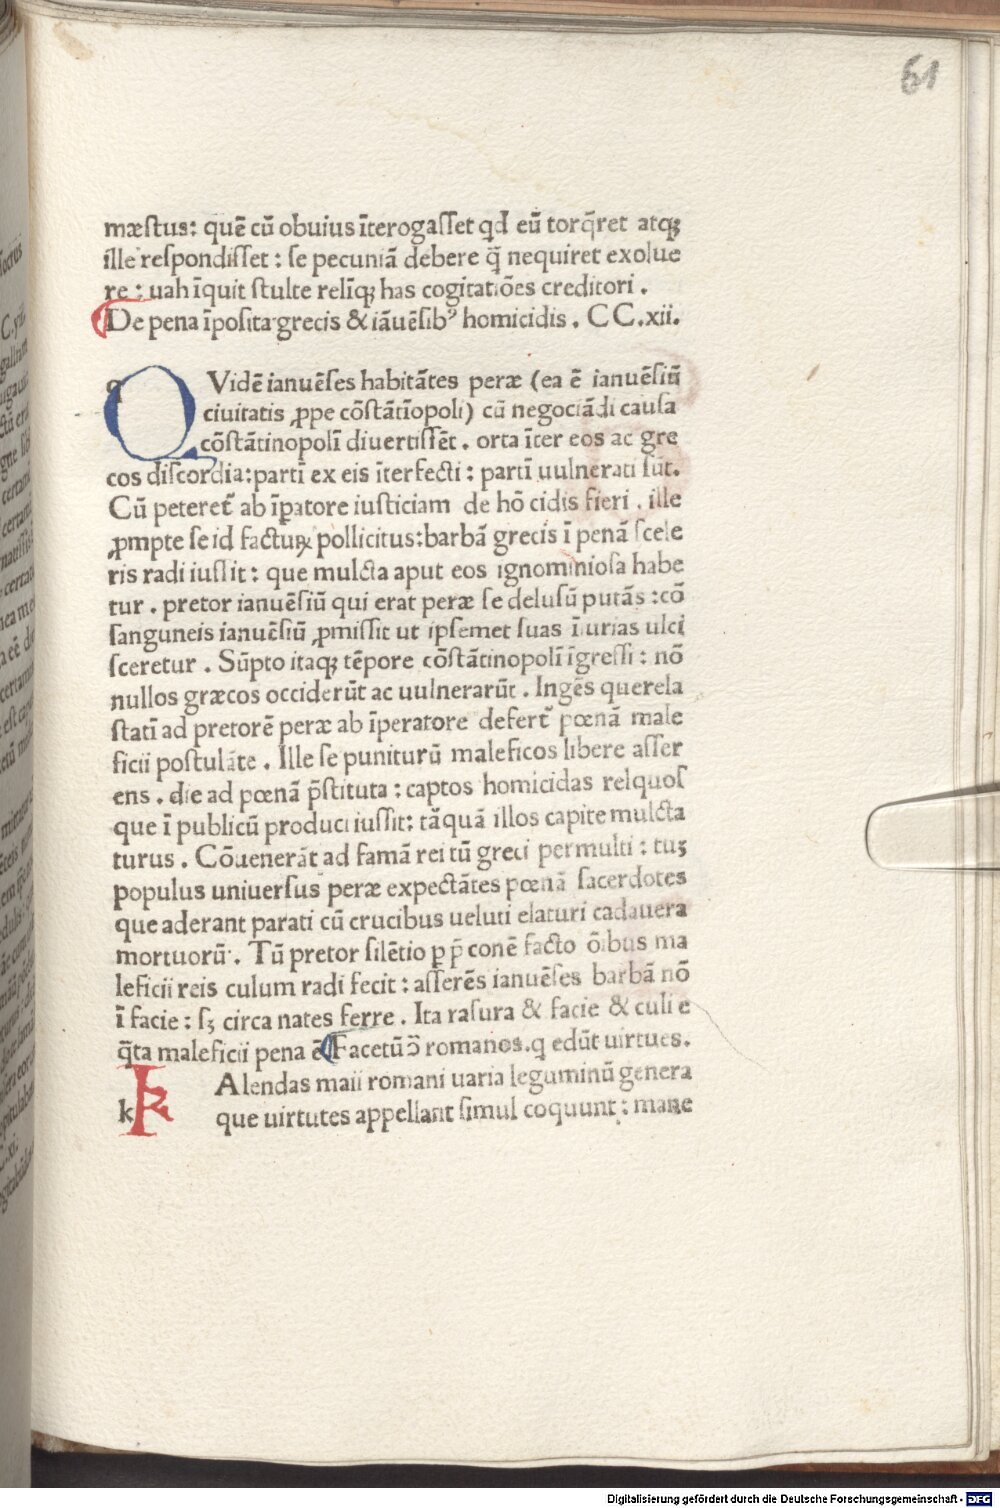 61
mæstus: quē cū obuius īterogasset qd eū torq̄ret atqꝫ
ille respondisset : se pecuniā debere q̄ nequiret exolue
re : uah īquit stulte relīqꝫ has cogitatiōes creditori .
De pena īposita grecis & iāuēsibꝰ homicidis . CC.xii.
q
QVidē ianuēses habitātes peræ (ea ē ianuēsiū
ciuitatis ꝓpe cōstātīopoli) cū negociādi causa
cōstātinopolī diuertissēt . orta īter eos ac gre
cos discordia: partī ex eis īterfecti : partī uulnerati sūt.
Cū peteret̄ ab īpatore iusticiam de hō cidis fieri . ille
ꝓmpte se id factuꝝ pollicitus: barbā grecis ī penā scele
ris radi iussit : que mulcta aput eos ignominiosa habe
tur . pretor ianuēsiū qui erat peræ se delusū putās : cō
sanguneis ianuēsiū ꝓmissit ut ipsemet suas īiurias ulci
sceretur . Sūpto itaqꝫ tēpore cōstātinopolī īgressi : nō
nullos græcos occiderūt ac uulnerarūt . Ingēs querela
statī ad pretorē peræ ab īperatore defert̄ pœnā male
ficii postulāte . Ille se puniturū maleficos libere asser
ens . die ad pœnā p̄stituta : captos homicidas relquos
que ī publicū produci iussit: tāquā illos capite mulcta
turus . Cōuenerāt ad famā rei tū greci permulti : tuꝫ
populus uniuersus peræ expectātes pœnā sacerdotes
que aderant parati cū crucibus ueluti elaturi cadauera
mortuorū . Tū pretor silētio p p̄conē facto ōibus ma
leficii reis culum radi fecit : asserēs ianuēses barbā nō
ī facie : sꝫ circa nates ferre . Ita rasura & facie & culi e
q̄ta maleficii pena ē Facetū ɔ̄ romanos. q edūt uirtues.
KAlendas maii romani uaria leguminū genera
k que uirtutes appellant simul coquunt : mane
Digitalisierung gefördert durch die Deutsche Forschungsgemeinschaft - DFG